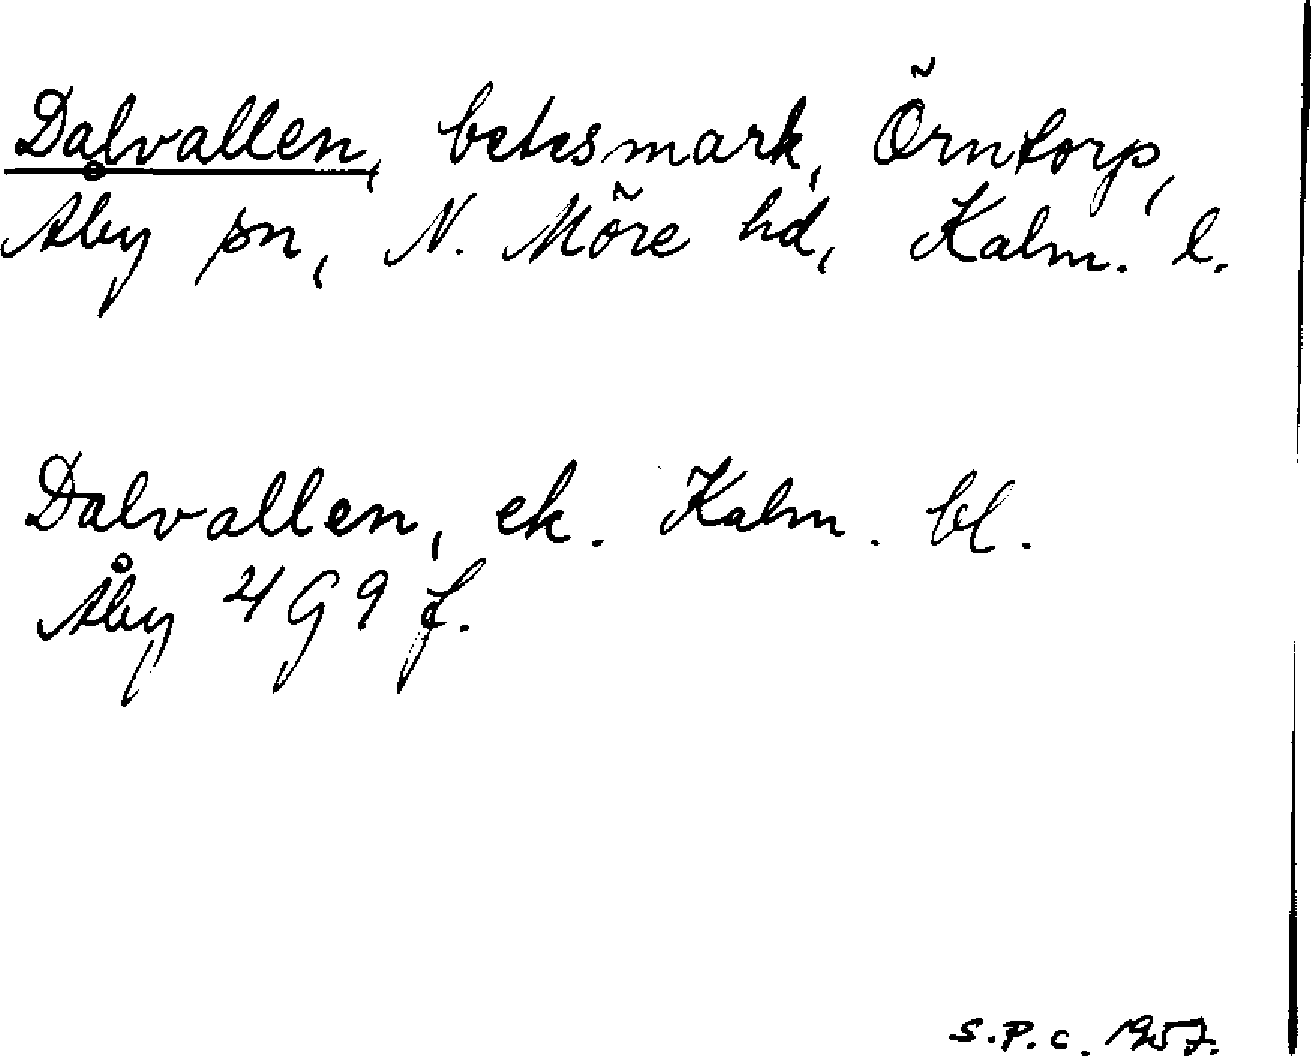 Dalvallen, betesmark, Örntorp,
Åby sn, N. Möre hd, Kalm. l.
Dalvallen, ek. Kalm. bl.
Åby 4G9f.
S.P.C. 1957.